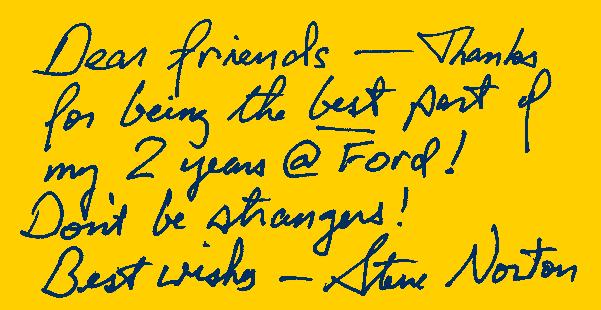 Dear friends — Thanks
for being the best part of
my 2 years @ Ford!
Don't be strangers!
Best wishes – Steve Norton